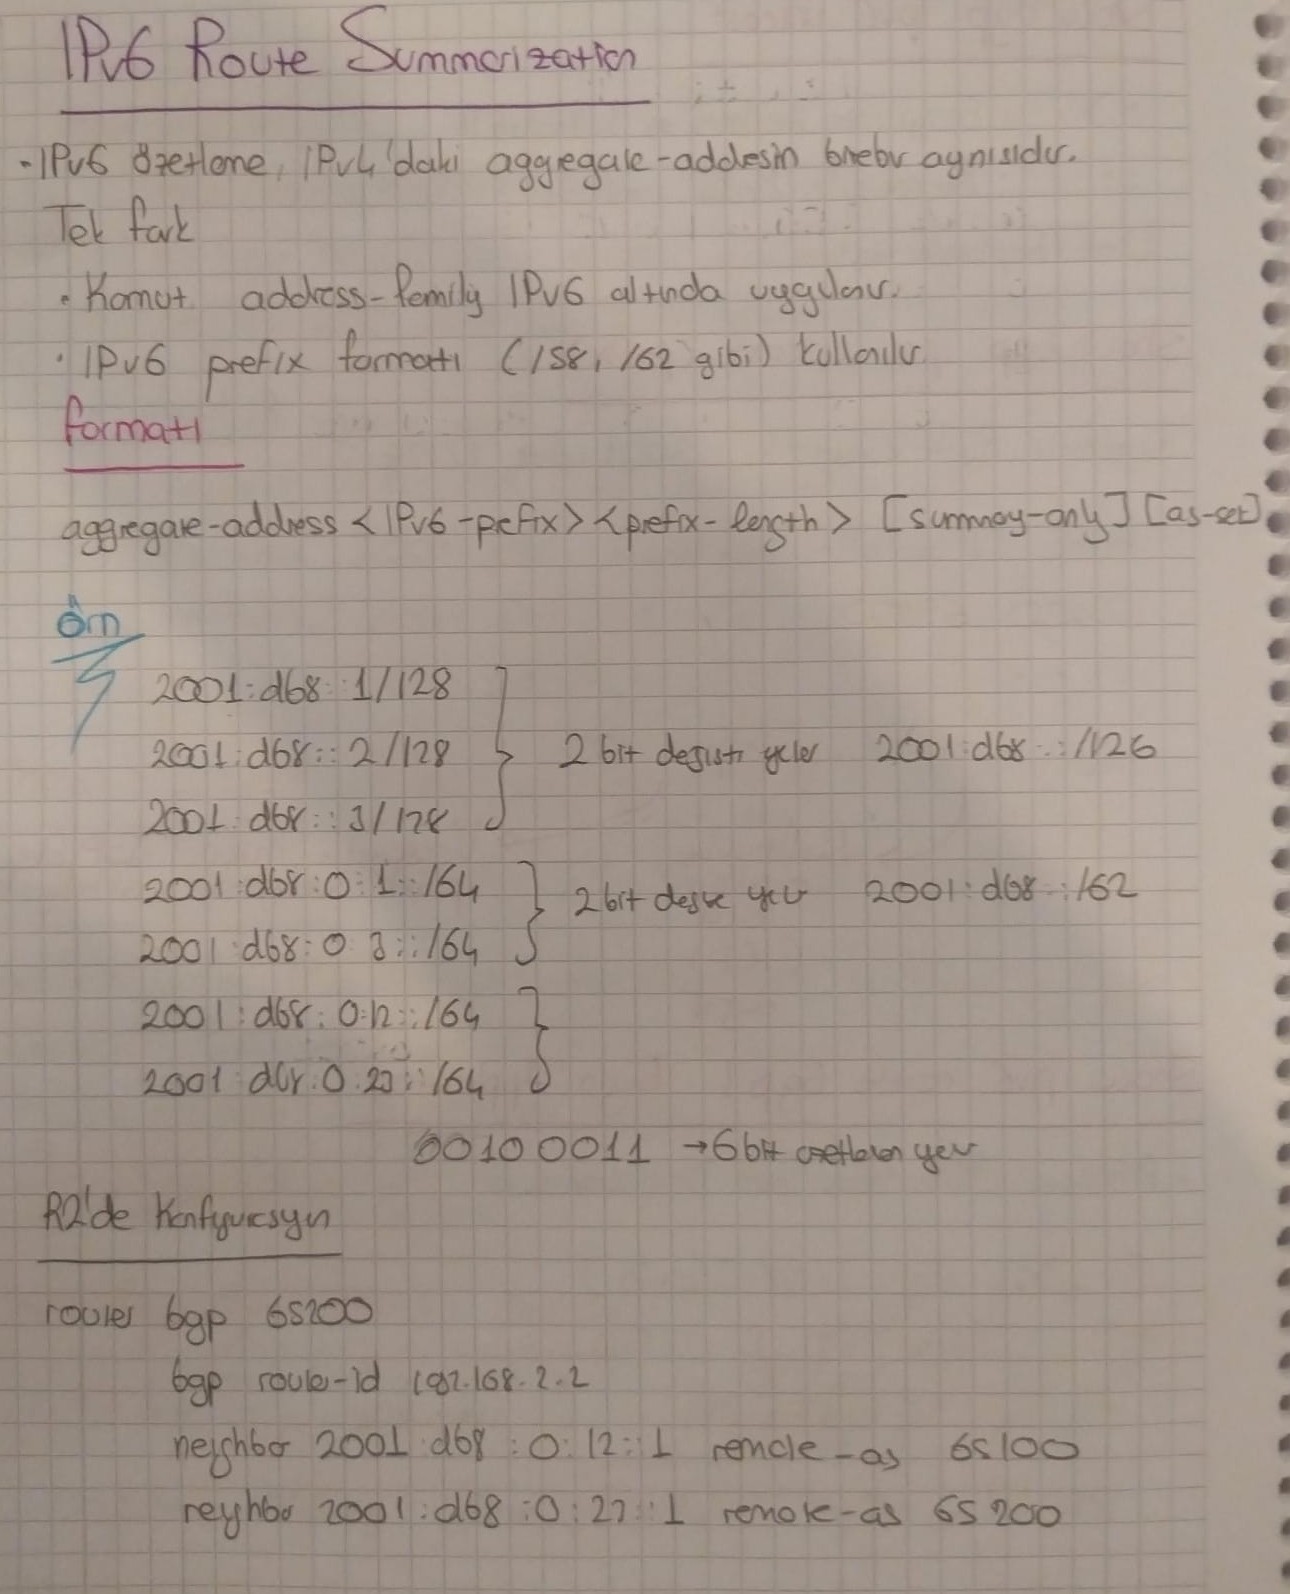 IPv6 Route Summarization
• IPv6 özetleme, IPv4'daki aggregate-addresin birebir aynısıdır.
Tek fark
• Komut address-family IPv6 altında uygulanır.
• IPv6 prefix formatı (/58, /62 gibi) kullanılır
formatı
aggregate-address <IPv6-prefix> <prefix-length> [summary-only] [as-set]
Örn
2001:db8::1/128
2001:db8::2/128 2 bit değişti yeter 2001:db8::/126
2001:db8::3/128
2001:db8:0:1::/64 2 bit yeter 2001:db8::/62
2001:db8:0:3::/64
2001:db8:0:12::/64
2001:db8:0:23::/64
00100011 → 6 bit yeter
R2'de Konfigürasyon
router bgp 65200
bgp router-id 192.168.2.2
neighbor 2001:db8:0:12::1 remote-as 65100
neighbor 2001:db8:0:23::1 remote-as 65200